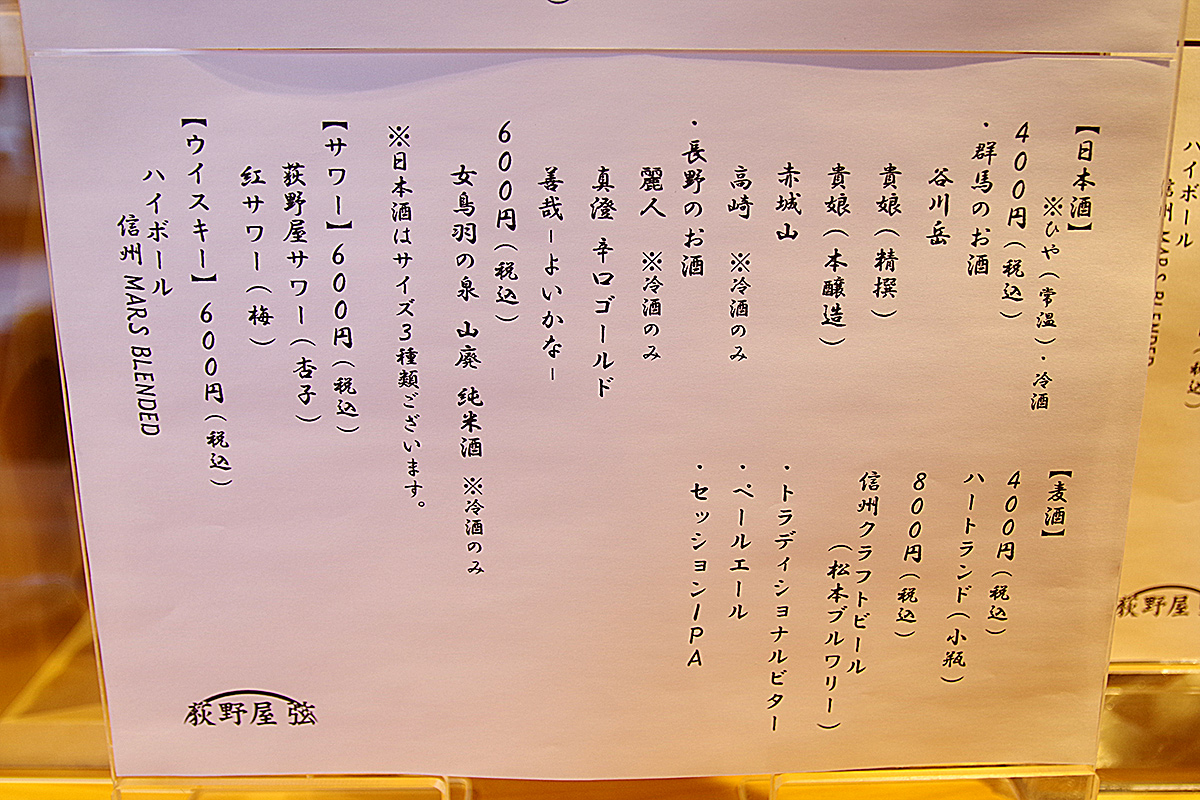 【日本酒】
※ひや（常温）・冷酒
400円（税込）
・群馬のお酒
谷川岳
貴娘（精撰）
貴娘（本醸造）
赤城山
高崎 ※冷酒のみ
・長野のお酒
麗人 ※冷酒のみ
真澄 辛口ゴールド
善哉－よいかな－
600円（税込）
女鳥羽の泉 山廃 純米酒 ※冷酒のみ
※日本酒はサイズ3種類ございます。
【麦酒】
400円（税込）
ハートランド（小瓶）
800円（税込）
信州クラフトビール
（松本ブルワリー）
・トラディショナルビター
・ペールエール
・セッションIPA
【サワー】600円（税込）
荻野屋サワー（杏子）
紅サワー（梅）
【ウイスキー】600円（税込）
ハイボール
信州 MARS BLENDED
荻野屋 弦
ハイボール
信州 MARS BLENDED
荻野屋